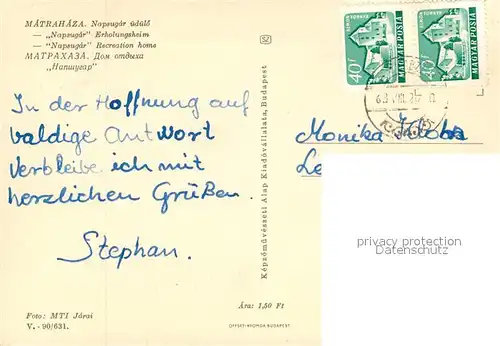 MÁTRAHÁZA. Napsugár üdülő
— „Napsugár" Erholungsheim
— „Napsugár" Recreation home
МАТРАХАЗА. Дом отдыха
„Напшугар"
In der Hoffnung auf
baldige Antwort
verbleibe ich mit
herzlichen Grüßen.
Stephan.
Foto: MTI Járai
V. - 90/631.
Ára: 1,50 Ft
OFFSET-NYOMDA BUDAPEST
Képzőművészeti Alap Kiadóvállalata, Budapest
40f
MAGYAR POSTA
40f
MAGYAR POSTA
Monika
Le
privacy protection
Datenschutz